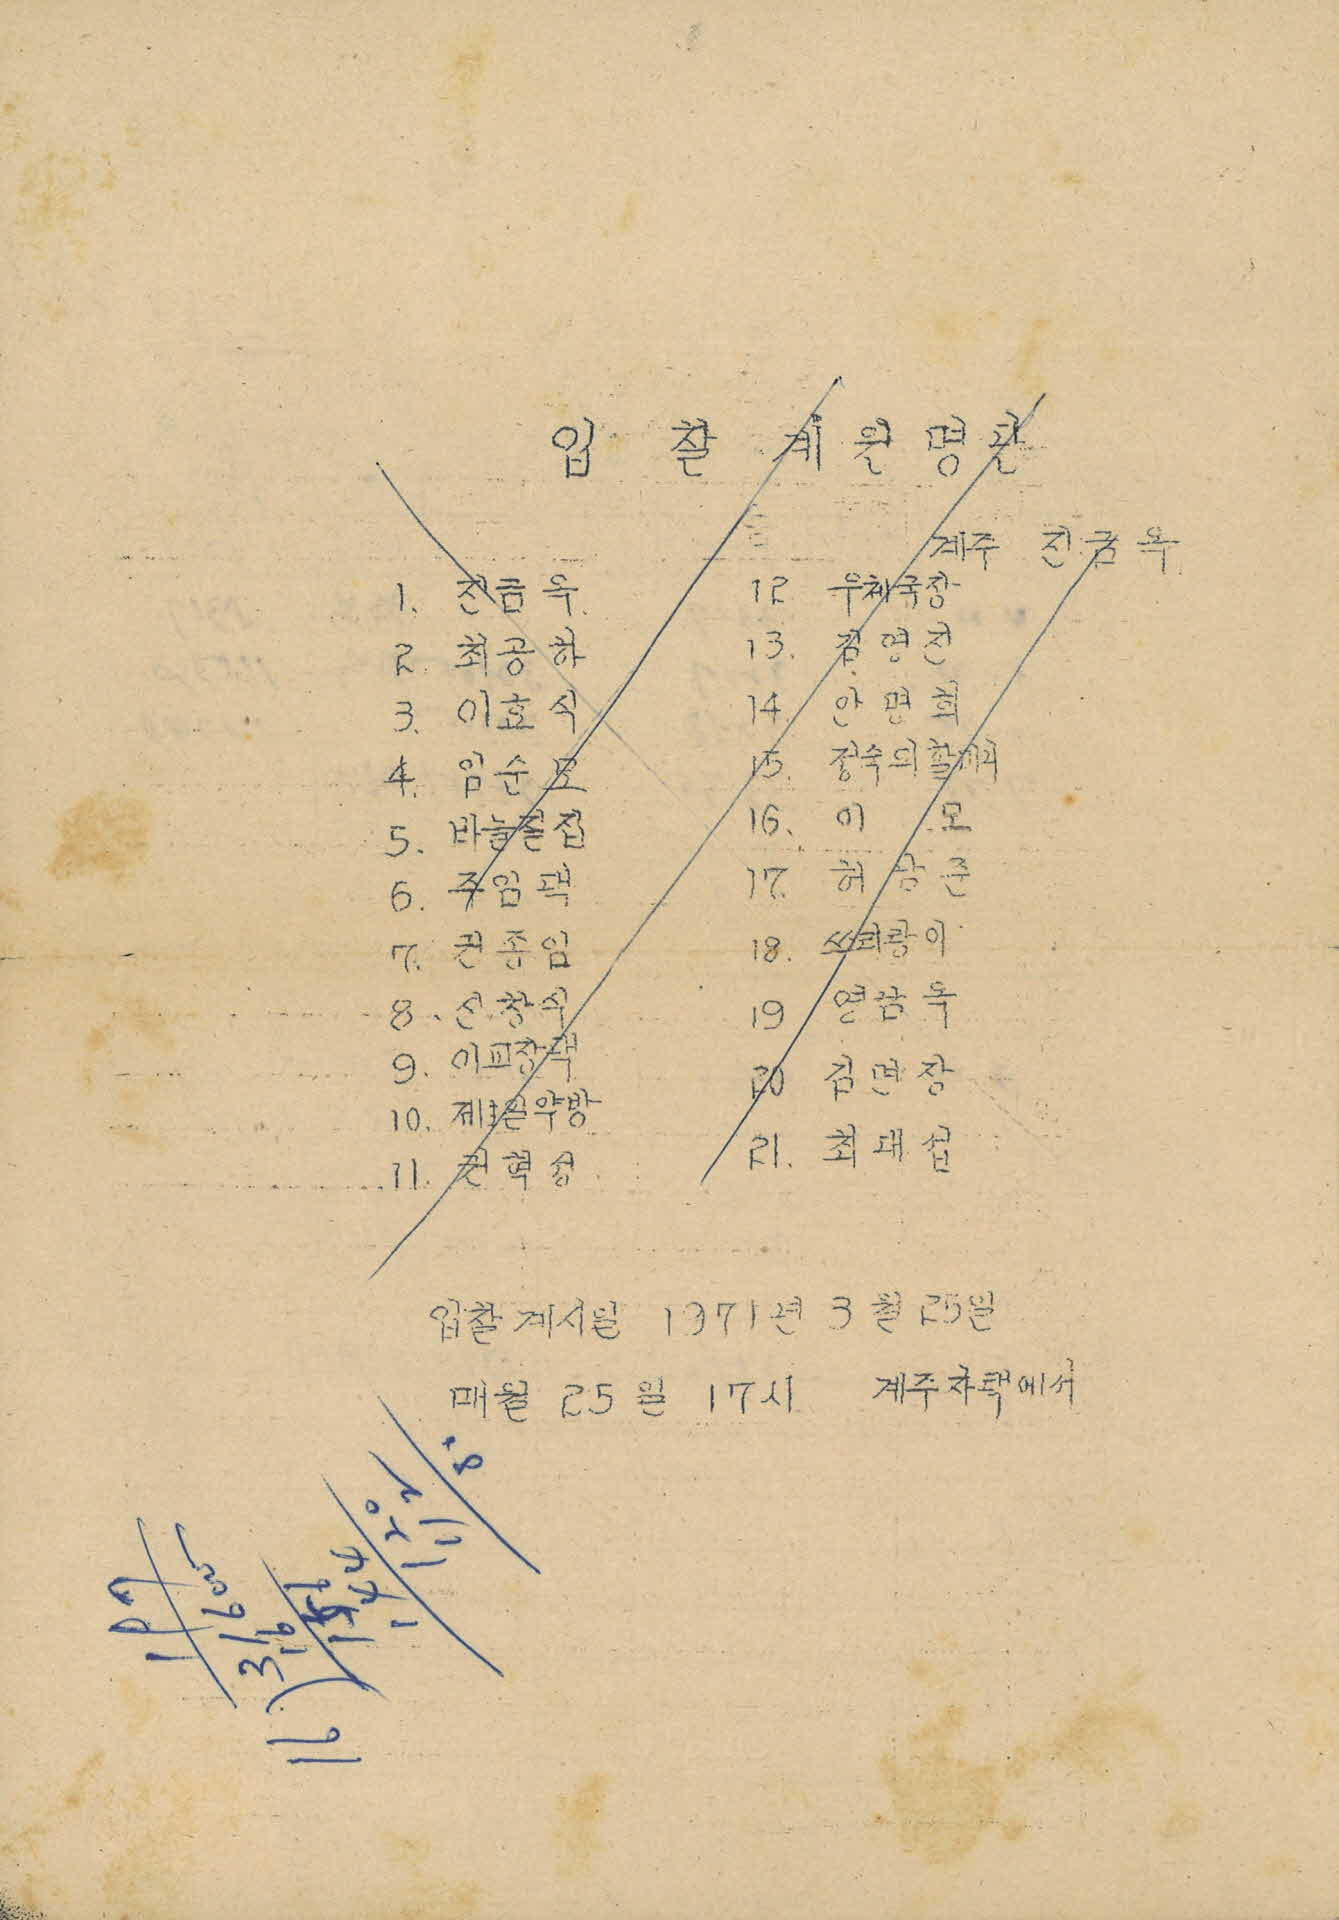 입찰계원명단
계주 진금옥
1. 진금옥
2. 최공하
3. 이효식
4. 임순모
5. 바늘질집
6. 주임댁
7. 권종임
8. 신창식
9. 이교장댁
10. 제일약방
11. 권혁성
12 우체국장
13. 김영진
14 안명희
15. 정숙의할머
16. 이 모
17. 허남준
18. 쓰리랑이
19 연남옥
20 김면장
21. 최대섭
입찰계시일 1971년 3월 25일
매월 25일 17시 계주자택에서